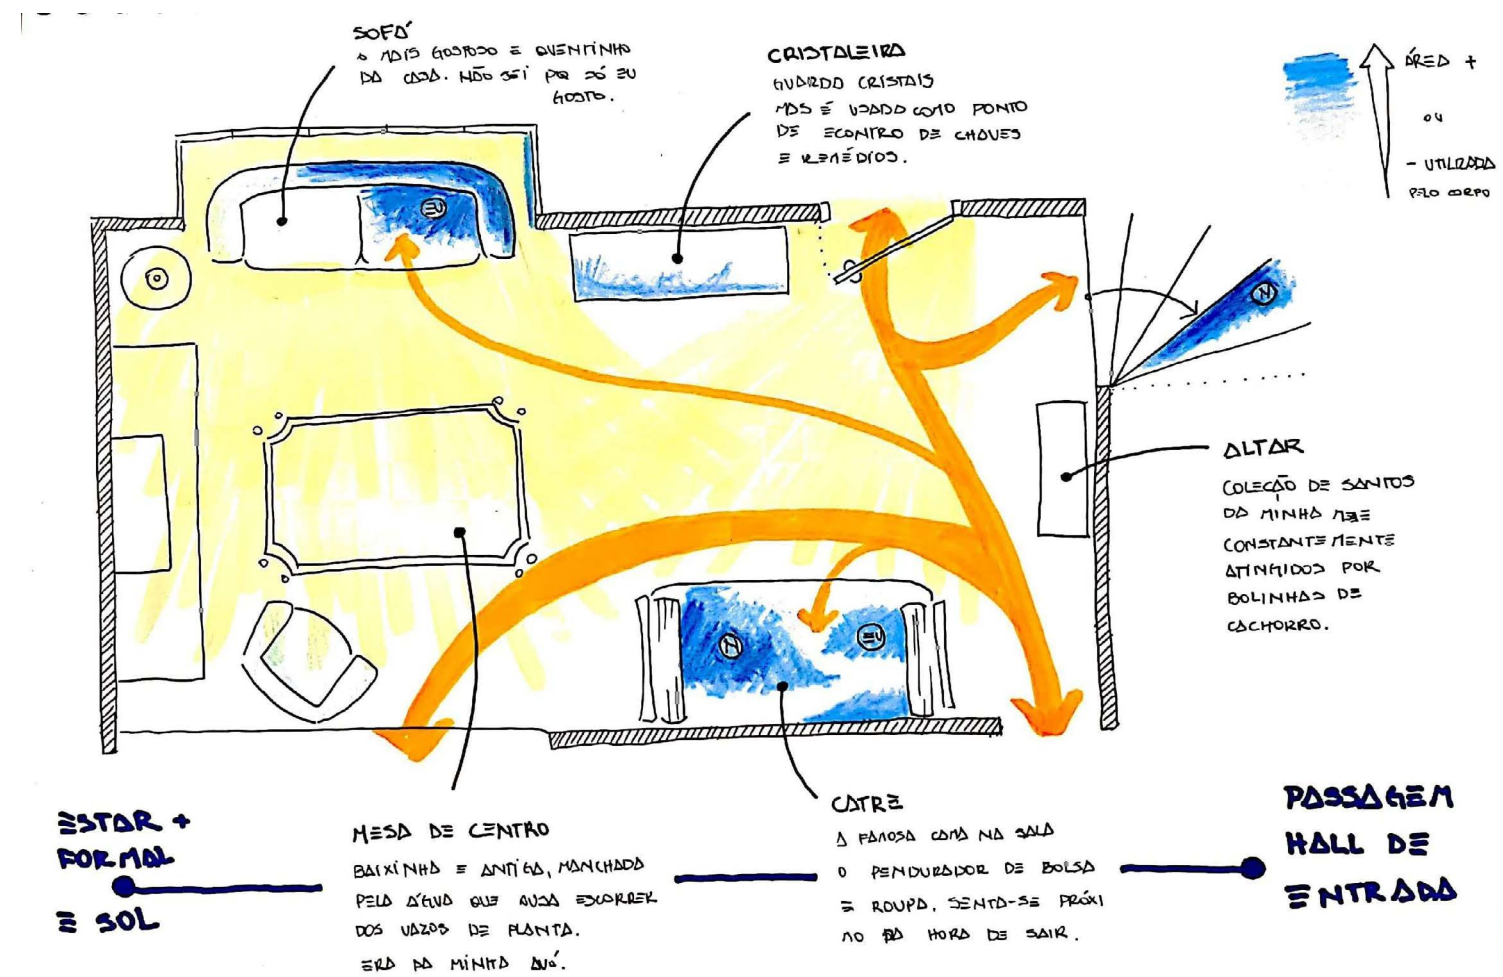 SOFÁ
O MAIS GOSTOSO E QUENTINHO
DA CASA. NÃO SEI PQ SÓ EU
GOSTO.
CRISTALEIRA
GUARDA CRISTAIS
MAS É USADA COMO PONTO
DE ECONTRO DE CHAVES
E REMÉDIOS.
ÁREA +
OU
- UTILIZADA
PELO CORPO
EU
N
ALTAR
COLEÇÃO DE SANTOS
DA MINHA MÃE
CONSTANTEMENTE
ATINGIDOS POR
BOLINHAS DE
CACHORRO.
N
EU
ESTAR +
FORMAL
E SOL
MESA DE CENTRO
BAIXINHA E ANTIGA, MANCHADA
PELA ÁGUA QUE AJSA ESCORRER
DOS VAZOS DE PLANTA.
ERA DA MINHA AVÓ.
CATRE
A FAMOSA CAMA NA SALA
O PENDURADOR DE BOLSA
E ROUPA, SENTA-SE PRÓXI
NO DA HORA DE SAIR.
PASSAGEM
HALL DE
ENTRADA